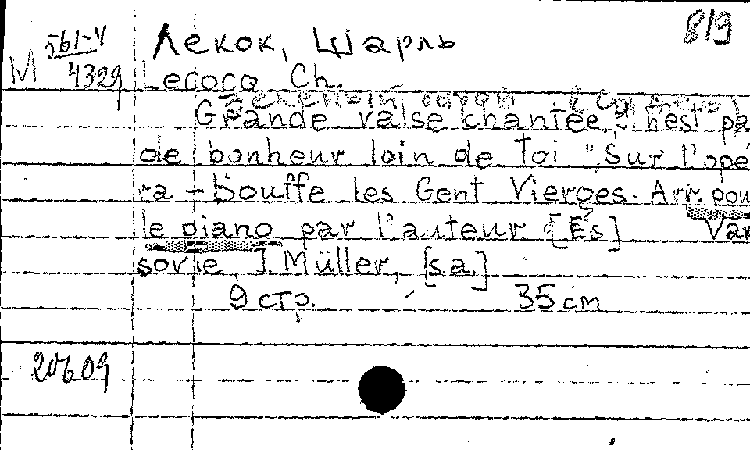 819
561-4 Лекок, Шарль
М 4329 Lecocq Ch.
Grande valse chantée, "n'est pa
de bonheur loin de toi" Sur l'opé
ra-bouffe les Gent Vierges. Arr. pou
le piano par l'auteur [Es] Var
sovie, J. Müller, [s.a.]
9 стр. 35 cm
20609